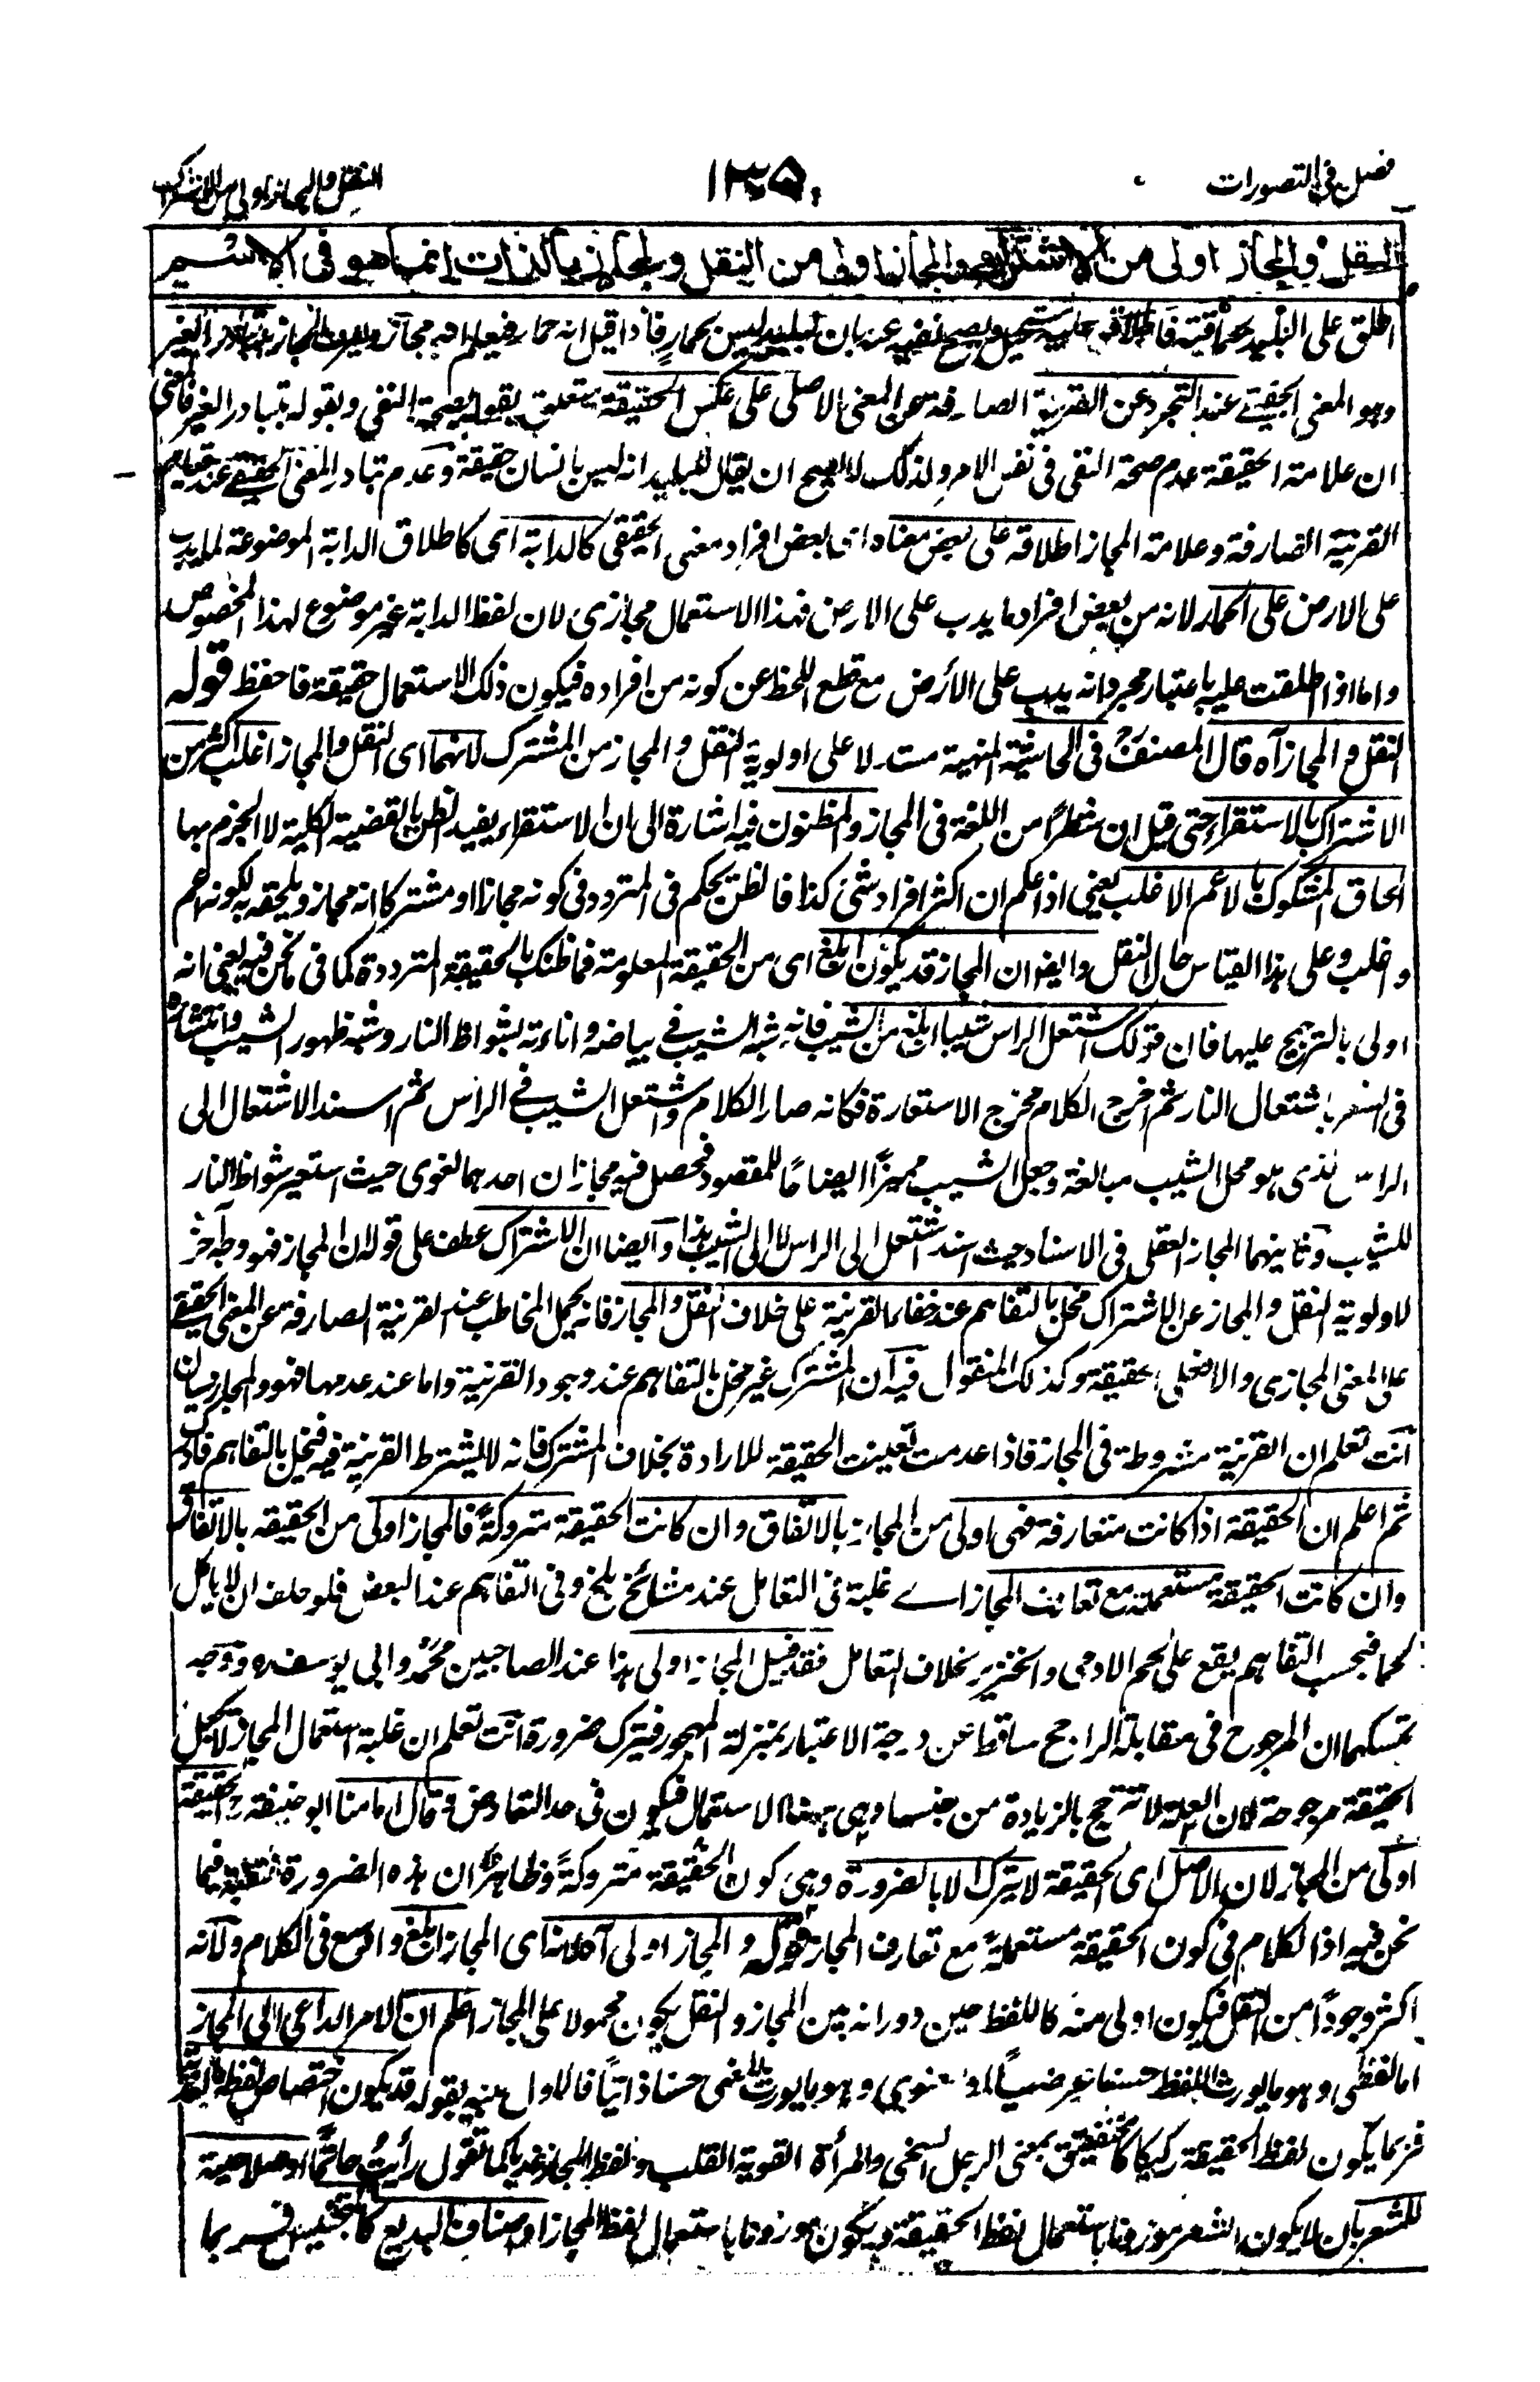 فصل فى التصورات
١٣٥
النقل والمجاز اولى من الاشتراك
النقل والمجاز اولى من الاشتراك والمجاز اولى من النقل والمجاز بالذات انما هو فى الاسم
اطلق على البليد فاطلاقه عليه ويصح نفيه عنه بان البليد ليس بحمار فاذا قيل انه حمار فيعلم انه مجاز الغير
وهو المعنى الحقيقے عند التجرد عن القرينة الصارفة عن المعنى الاصلى على عكس الحقيقة متعلق بقوله بصحة النفى وبقوله بتبادر الغير فالمعنى
ان علامة الحقيقة عدم صحة النفى فى نفس الامر ولذلك لا يصح ان يقال للبليد انه ليس بانسان حقيقة وعدم تبادر المعنى الحقيقے عند
القرينة الصارفة وعلامة المجاز اطلاقه على بعض معناه اى بعض افراد معنى الحقيقى كالدابة اى كاطلاق الدابة الموضوعة لما يدب
على الارض على الحمار لانه من بعض افراد ما يدب على الارض فهذا الاستعمال مجازى لان لفظ الدابة غير موضوع لهذا المخصوص
واما اذا اطلقت عليه باعتبار مجرد انه يدب على الأرض مع قطع اللحظ عن كونه من افراده فيكون ذلك الاستعمال حقيقة فاحفظ قوله
النقل والمجاز آه قال المصنف رح فى الحاشية المنهية مستدلا على اولوية النقل والمجاز من المشترك لانهما اى النقل والمجاز اغلب اكثر من
الاشتراك بالاستقراء حتى قيل ان شطرًا من اللغة فى المجاز والمظنون فيه اشارة الى ان الاستقراء يفيد الظن بالقضية الكلية لا الجزم بها
الحاق المشكوك بالاعم الاغلب يعنى اذا علم ان اكثر افراد شئ كذا فالظن يحكم فى المتردد فى كونه مجازا او مشتركا انه مجاز ويلحقه به لكونه اعم
واغلب وعلى هذا القياس حال النقل وايضا ان المجاز قد يكون ابلغ اى من الحقيقة المعلومة فما ظنك بالحقيقة المترددة كما فى نحن فيه يعنى انه
اولى بالترجيح عليها فان قولك اشتعل الراس شيبا ابلغ من الشيب فانه شبه الشيب فے بياضه واناءته بشواظ النار وشبه ظهور الشيب وانتشاره
فى الشعر باشتعال النار ثم اخرج الكلام مخرج الاستعارة فكانه صار الكلام واشتعل الشيب فے الراس ثم اسند الاشتعال الى
الراس الذى هو محل الشيب مبالغة وجعل الشيب مميزًا ايضاحًا للمقصود فحصل فيه مجازان احدهما لغوى حيث استعير شواظ النار
للشيب وثانيهما المجاز العقلى فى الاسناد حيث اسند اشتعل الى الراس لا الى الشيب هذا وايضا ان الاشتراك عطف على قوله ان المجاز فهو وجه آخر
لاولوية النقل والمجاز عن الاشتراك مخل بالتفاهم عند خفاء القرينة على خلاف النقل والمجاز فانه يحمل المخاطب عند القرينة الصارفة عن المعنى الحقيقے
على المعنى المجازى والا فعلى الحقيقة وكذلك المنقول فيه ان المشترك غير مخل بالتفاهم عند وجود القرينة واما عند عدمها فهو والمجاز سيان
انت تعلم ان القرينة مشروطة فى المجاز فاذا عدمت تعينت الحقيقة للارادة بخلاف المشترك فانه لا يشترط القرينة فيه فيخل بالتفاهم فادرك
ثم اعلم ان الحقيقة اذا كانت متعارفة فهى اولى من المجاز بالاتفاق وان كانت الحقيقة متروكةً فالمجاز اولى من الحقيقه بالاتفاق
وان كانت الحقيقة مستعملة مع تعارف المجاز اے غلبة فى التعامل عند مشائخ بلخ وفى التفاهم عند البعض فلو حلف ان لا ياكل
لحما فبحسب التفاهم يقع على لحم الادمى والخنزير بخلاف التعامل فقد قيل المجاز اولى هذا عند الصاحبين محمد وابى يوسف ووجه
تمسكهما ان المرجوح فى مقابلة الراجح ساقط عن درجة الاعتبار بمنزلة المهجور فيترك ضرورة انت تعلم ان غلبة استعمال المجاز لا تجعل
الحقيقة مرجوحة لان العلة لا تترجح بالزيادة من جنسها وهى ههنا الاستعمال فيكون فى حد التعارض وقال امامنا ابو حنيفة رح الحقيقة
اولى من المجاز لان الاصل اى الحقيقة لا يترك الا بالضرورة وهى كون الحقيقة متروكةً وظاهر ان هذه الضرورة منتفية فيما
نحن فيه اذا الكلام فى كون الحقيقة مستعملةً مع تعارف المجاز قوله والمجاز اولى آه لانه اى المجاز ابلغ واوسع فى الكلام ولانه
اكثر وجودًا من النقل فيكون اولى منه كاللفظ حين دورانه بين المجاز والنقل يكون محمولا على المجاز اعلم ان الامر الداعى الى المجاز
اما لفظى وهو ما يورث اللفظ حسنا عرضياً او معنوى وهو ما يورث المعنى حسنا ذاتياً فالاول نبه بقوله قد يكون اختصاص لفظه
فربما يكون لفظ الحقيقة ركيكا كالخنفقيق بمعنى الرجل السخى والمرأة القوية القلب ولفظ المجاز عذبا كما تقول رأيتُ حاتمًا او صلاحية
للشعر بان لا يكون الشعر موزونا باستعمال لفظ الحقيقة ويكون موزونا باستعمال لفظ المجاز او اصناف البديع كالتجنيس فربما